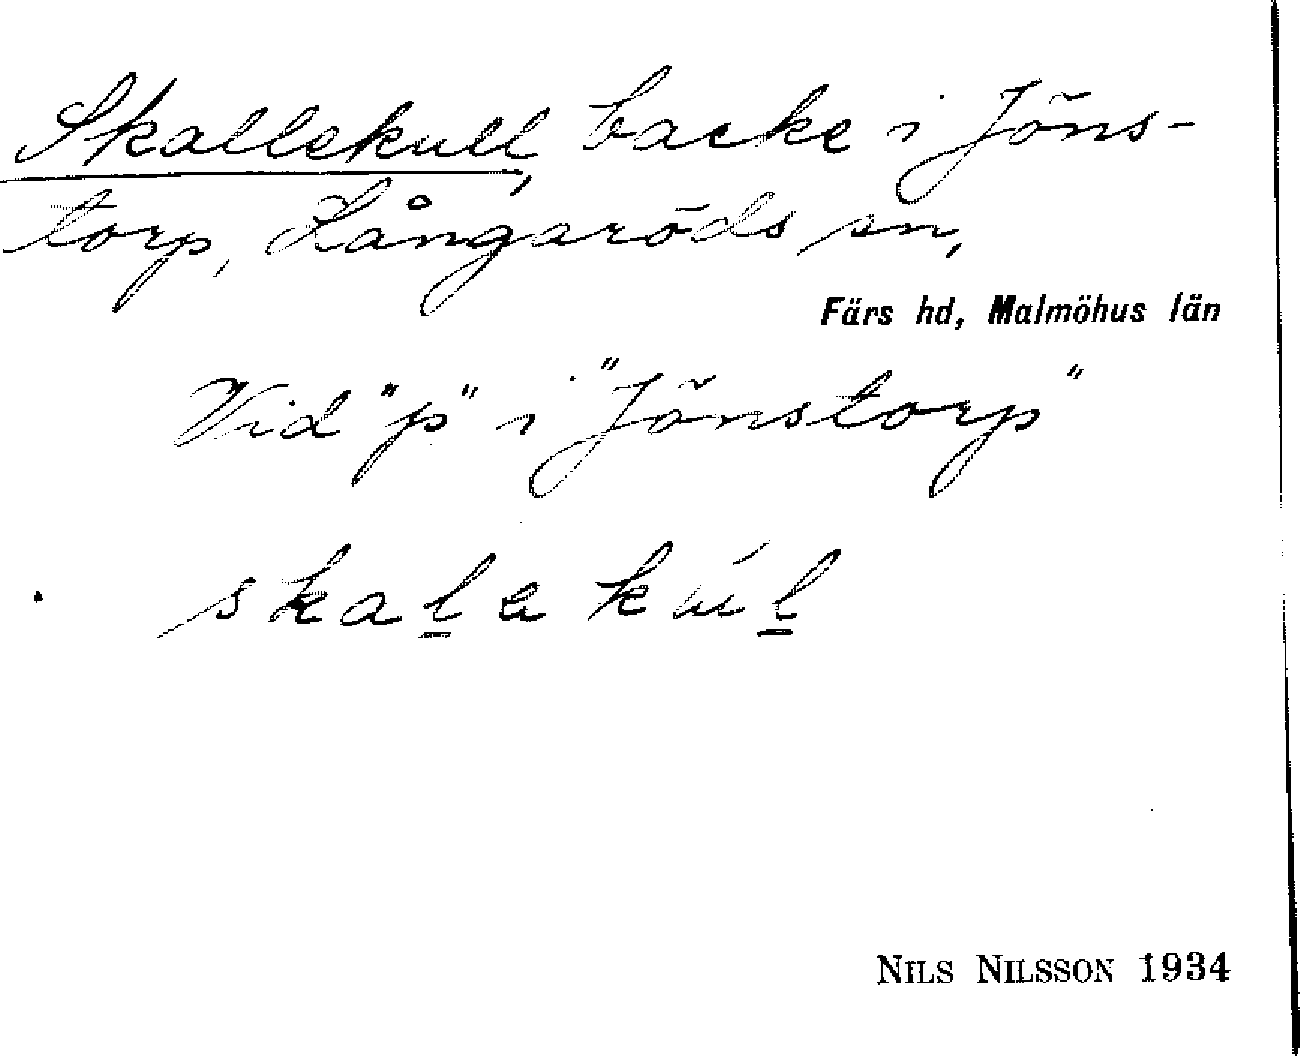 Skallekull, backe i Jöns-
torp, Långaröds sn,
Färs hd, Malmöhus län
Vid "p" i "Jönstorp"
skal̲a kúl̲
NILS NILSSON 1934